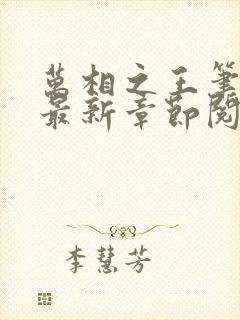 萬相之王筆
最新章節閱
李慧芳